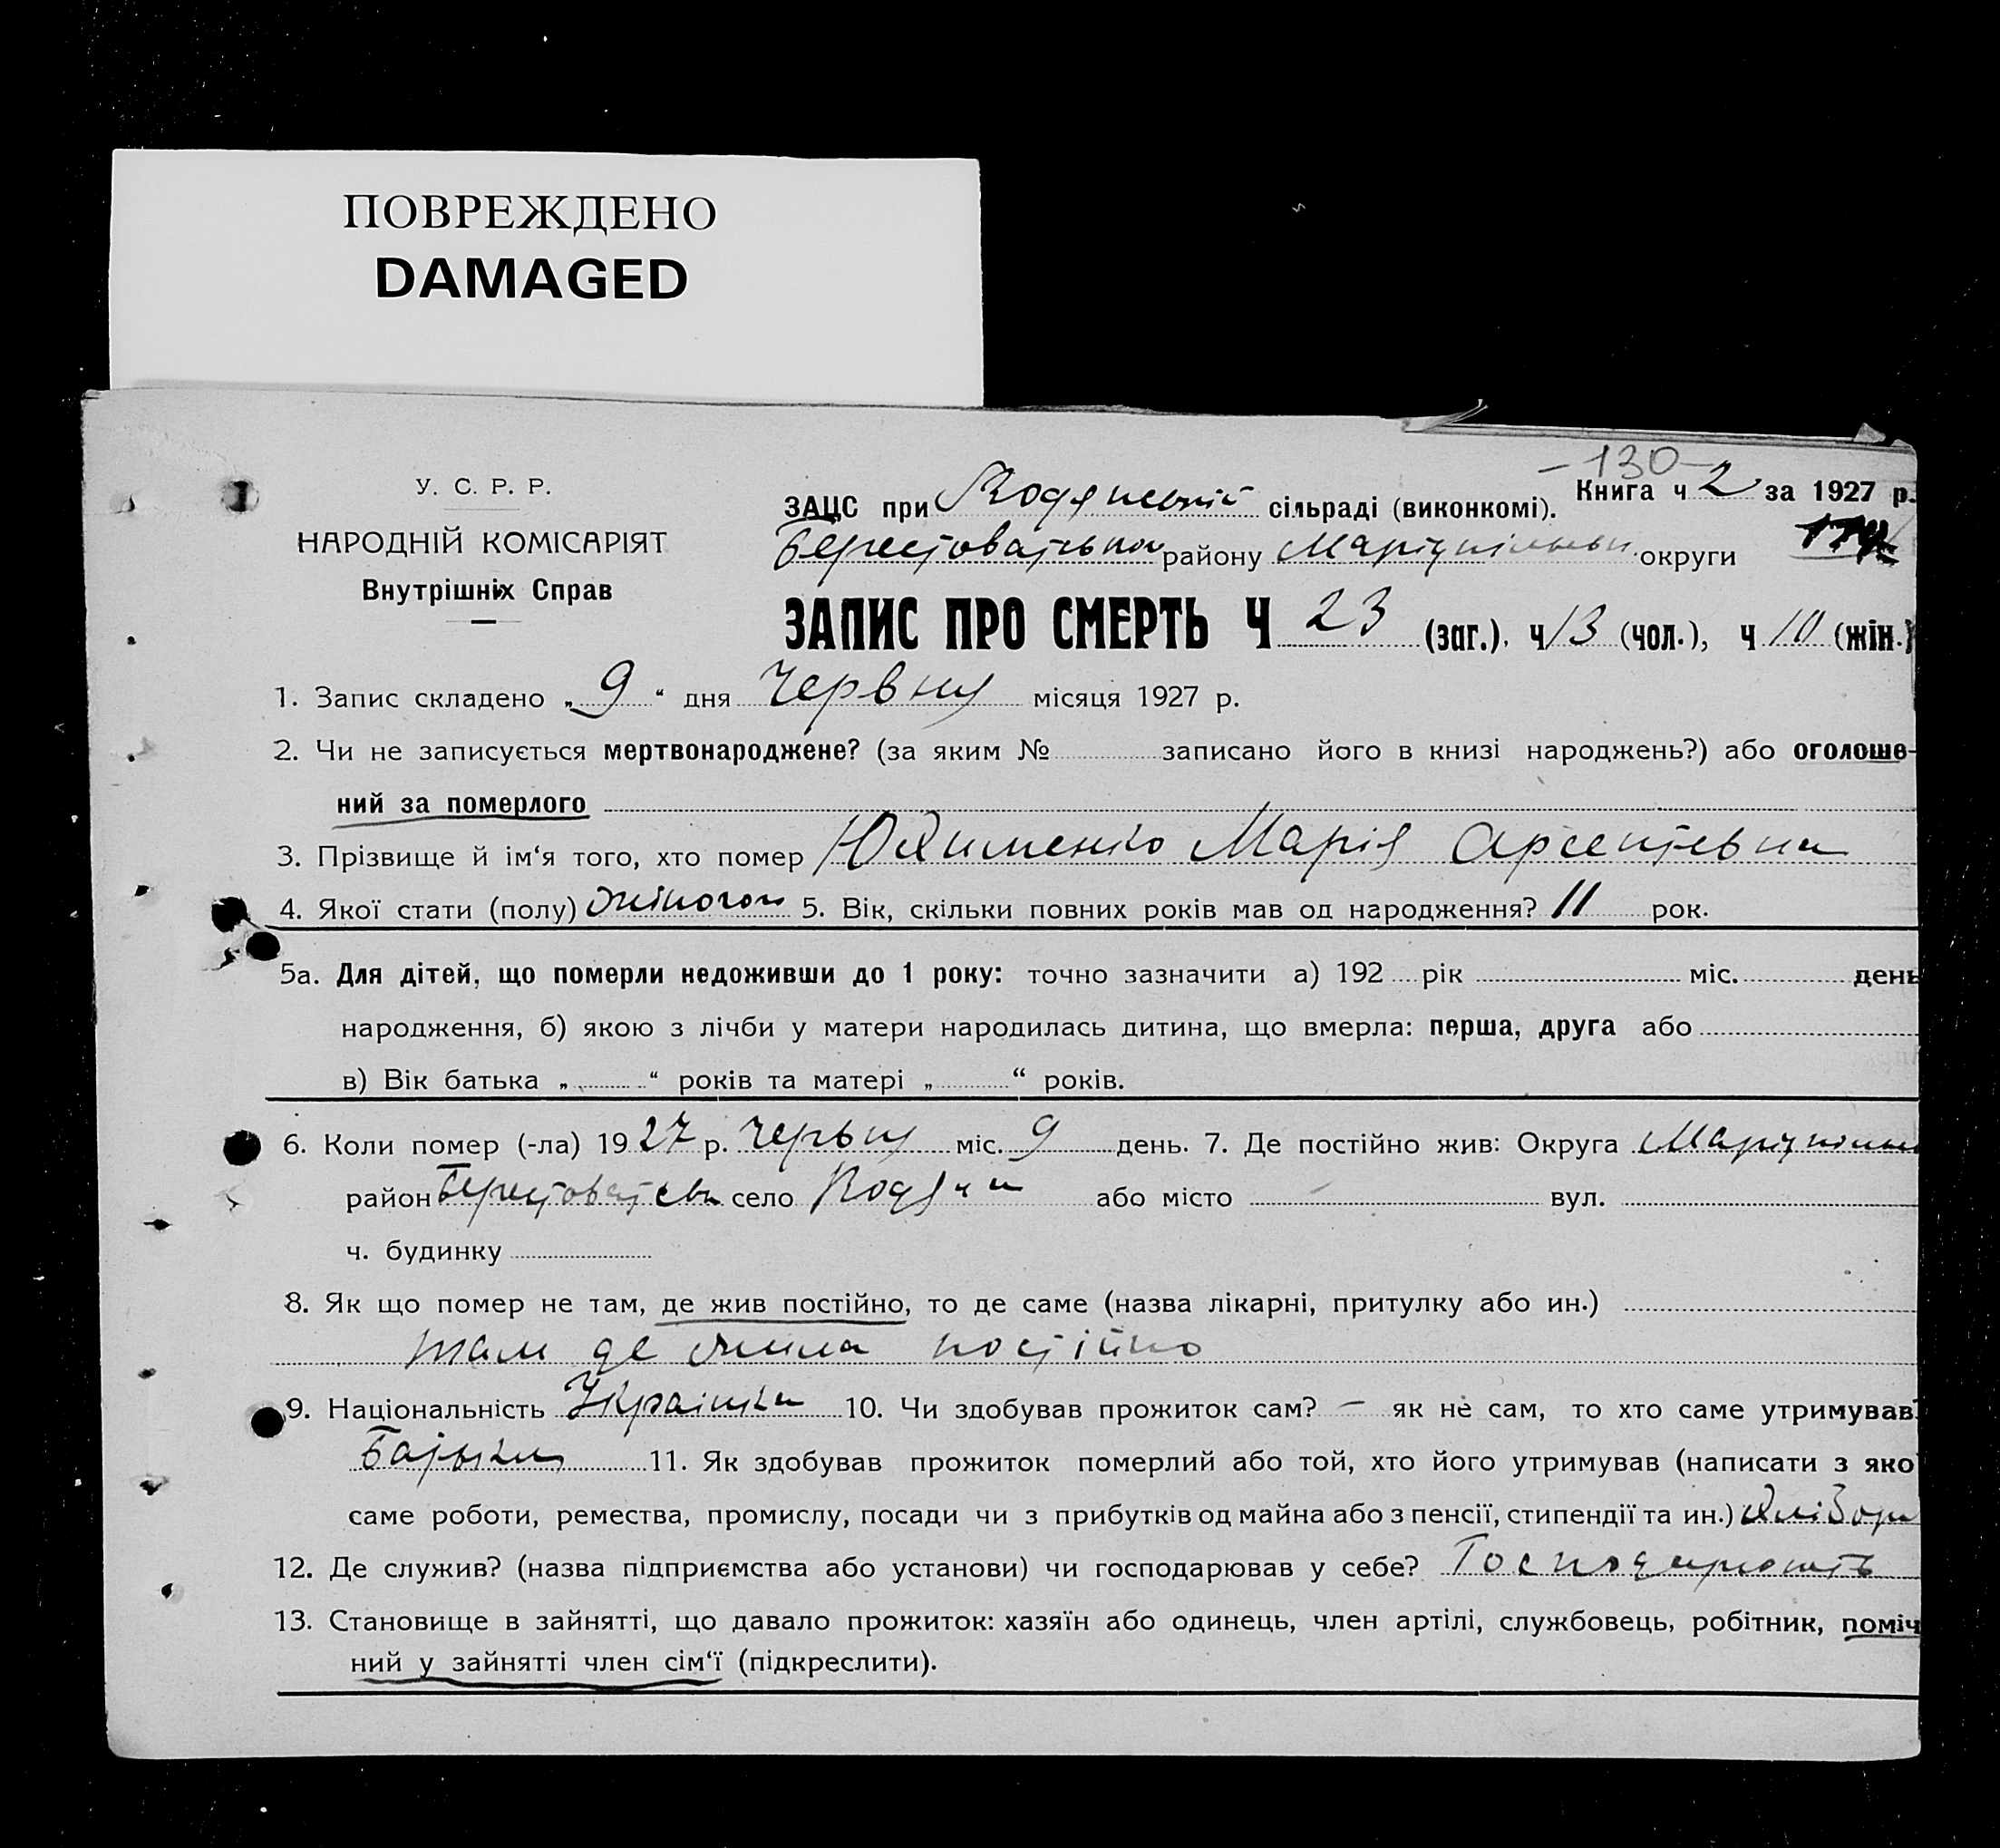 ПОВРЕЖДЕНО
DAMAGED
-130-
У. С. Р. Р.
НАРОДНІЙ КОМІСАРІЯТ
Внутрішніх Справ
Книга ч 2 за 1927 р.
ЗАЦС при Водянській сільраді (виконкомі).
Берестоватськ району Маріупільськ округи
ЗАПИС ПРО СМЕРТЬ Ч 23 (заг.), ч 13 (чол.), ч 10 (жін.)
1. Запис складено „9“ дня Червня місяця 1927 р.
2. Чи не записується мертвонароджене? (за яким № записано його в книзі народжень?) або оголоше-
ний за померлого
3. Прізвище й ім‘я того, хто помер Марія Арсентевна
4. Якої стати (полу) жіночої 5. Вік, скільки повних років мав од народження? 11 рок.
5а. Для дітей, що померли недоживши до 1 року: точно зазначити а) 192 рік міс. день
народження, б) якою з лічби у матери народилась дитина, що вмерла: перша, друга або
в) Вік батька „ “ років та матері „ “ років.
6. Коли помер (-ла) 1927 р. червня міс. 9 день. 7. Де постійно жив: Округа Маріупільськ
район Берестоватськ село Водяни або місто вул.
ч. будинку
8. Як що помер не там, де жив постійно, то де саме (назва лікарні, притулку або ин.)
там де жила постійно
9. Національність Украінка 10. Чи здобував прожиток сам? — як не сам, то хто саме утримував
Батьки 11. Як здобував прожиток померлий або той, хто його утримував (написати з яко
саме роботи, ремества, промислу, посади чи з прибутків од майна або з пенсії, стипендії та ин.) хлібор
12. Де служив? (назва підприємства або установи) чи господарював у себе? Господарюють
13. Становище в зайнятті, що давало прожиток: хазяїн або одинець, член артілі, службовець, робітник, поміч
ний у зайнятті член сім‘ї (підкреслити).